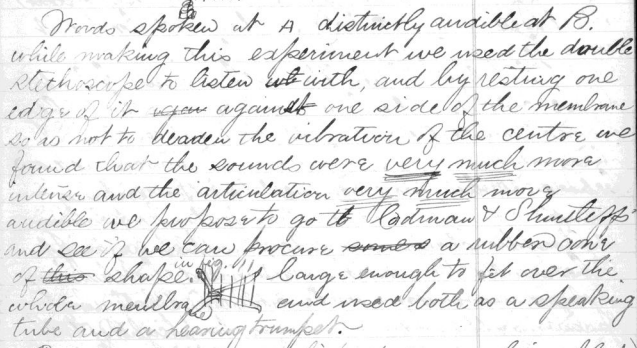 Words spoken at A distinctly audible at B.
while making this experiment we used the double
stethoscope to listen with, and by resting one
edge of it against one side of the membrane
so as not to deaden the vibration of the centre we
found that the sounds were very much more
intense and the articulation very much more
audible we propose to go to Codman & Shurtleff's
and see if we can procure a rubber cone
of this shape. in fig. 11 large enough to fit over the
whole membra and used both as a speaking
tube and a hearing trumpet.